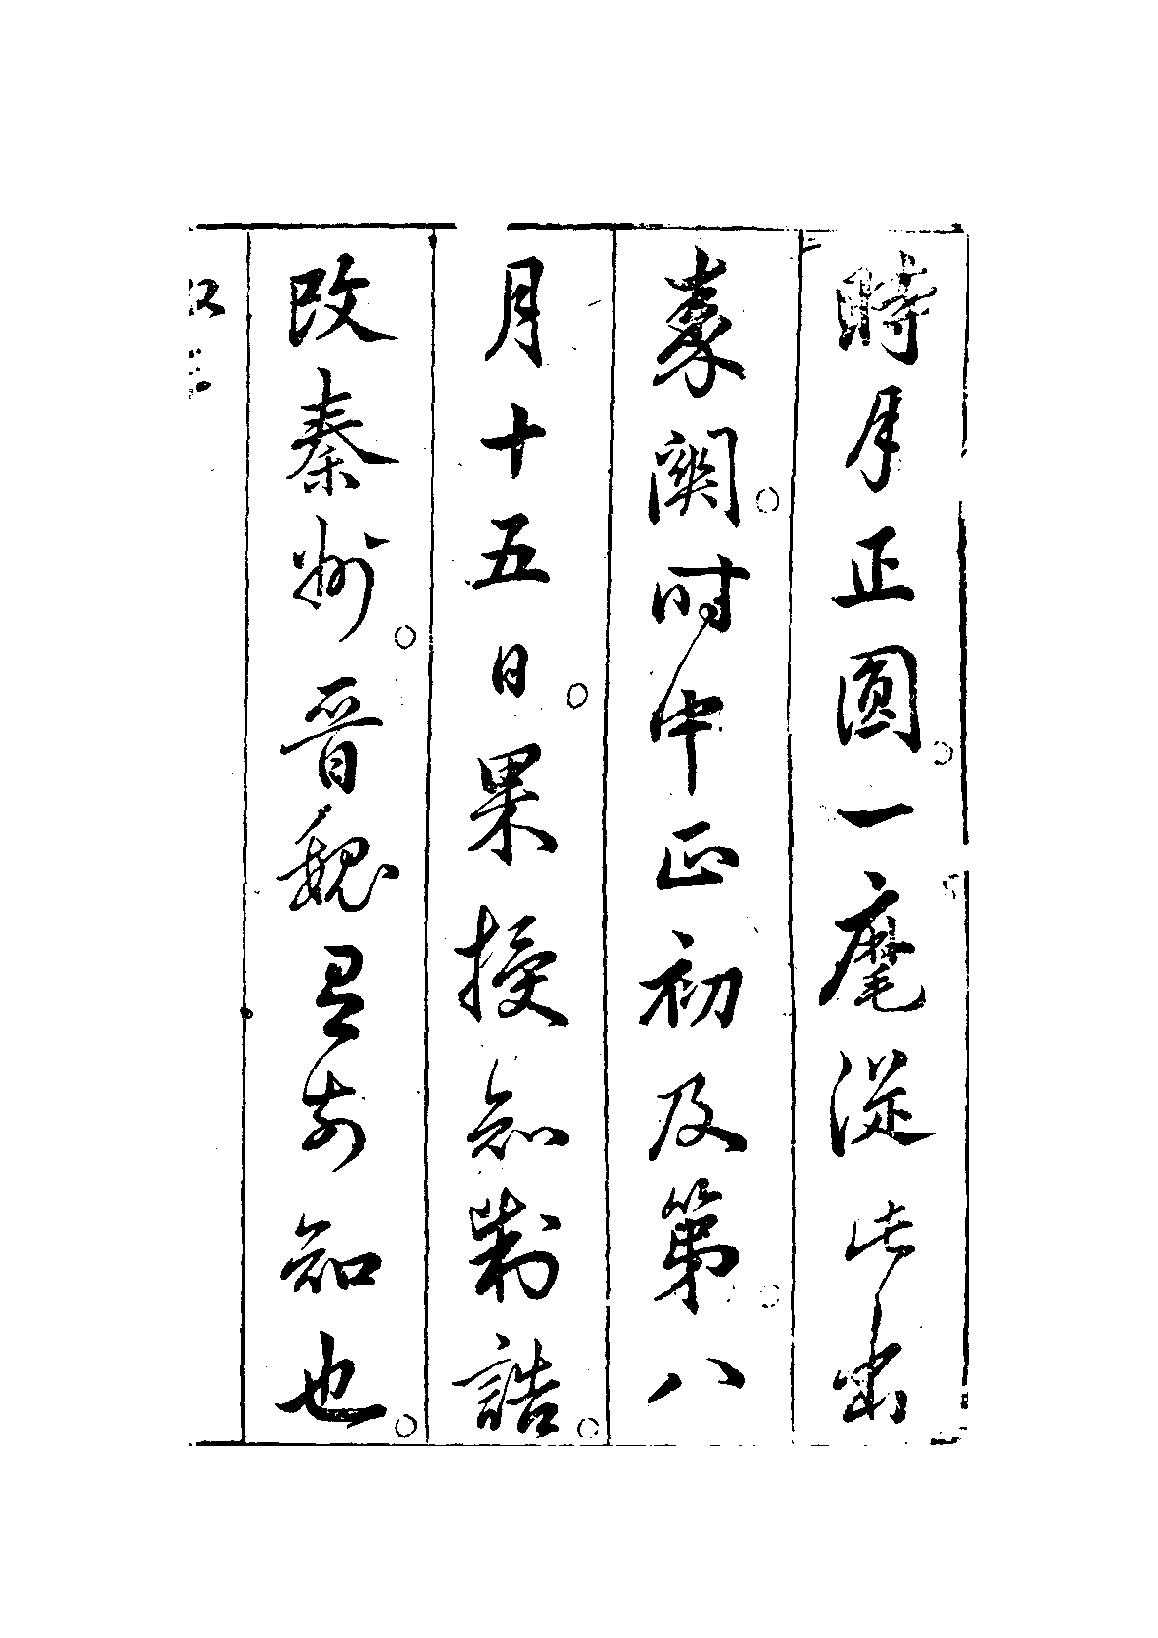 時月正圓一麾從此出
關时中正初及第八
月十五日果授知制誥
改秦州晉魏前知也